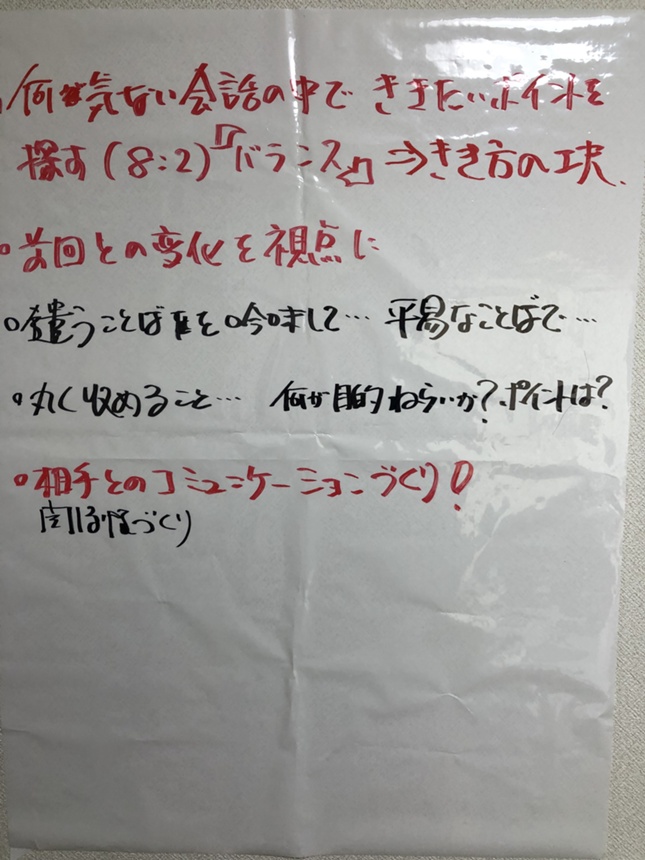 何気ない会話の中で ききたいポイントを
探す(8:2)『バランス』⇒きき方の工夫、
○前回との変化を視点に
○遣うことばを吟味して… 平易なことばで…
○丸く収めること… 何が目的ねらいか?ポイントは?
○相手とのコミュニケーションづくり!
関係性づくり